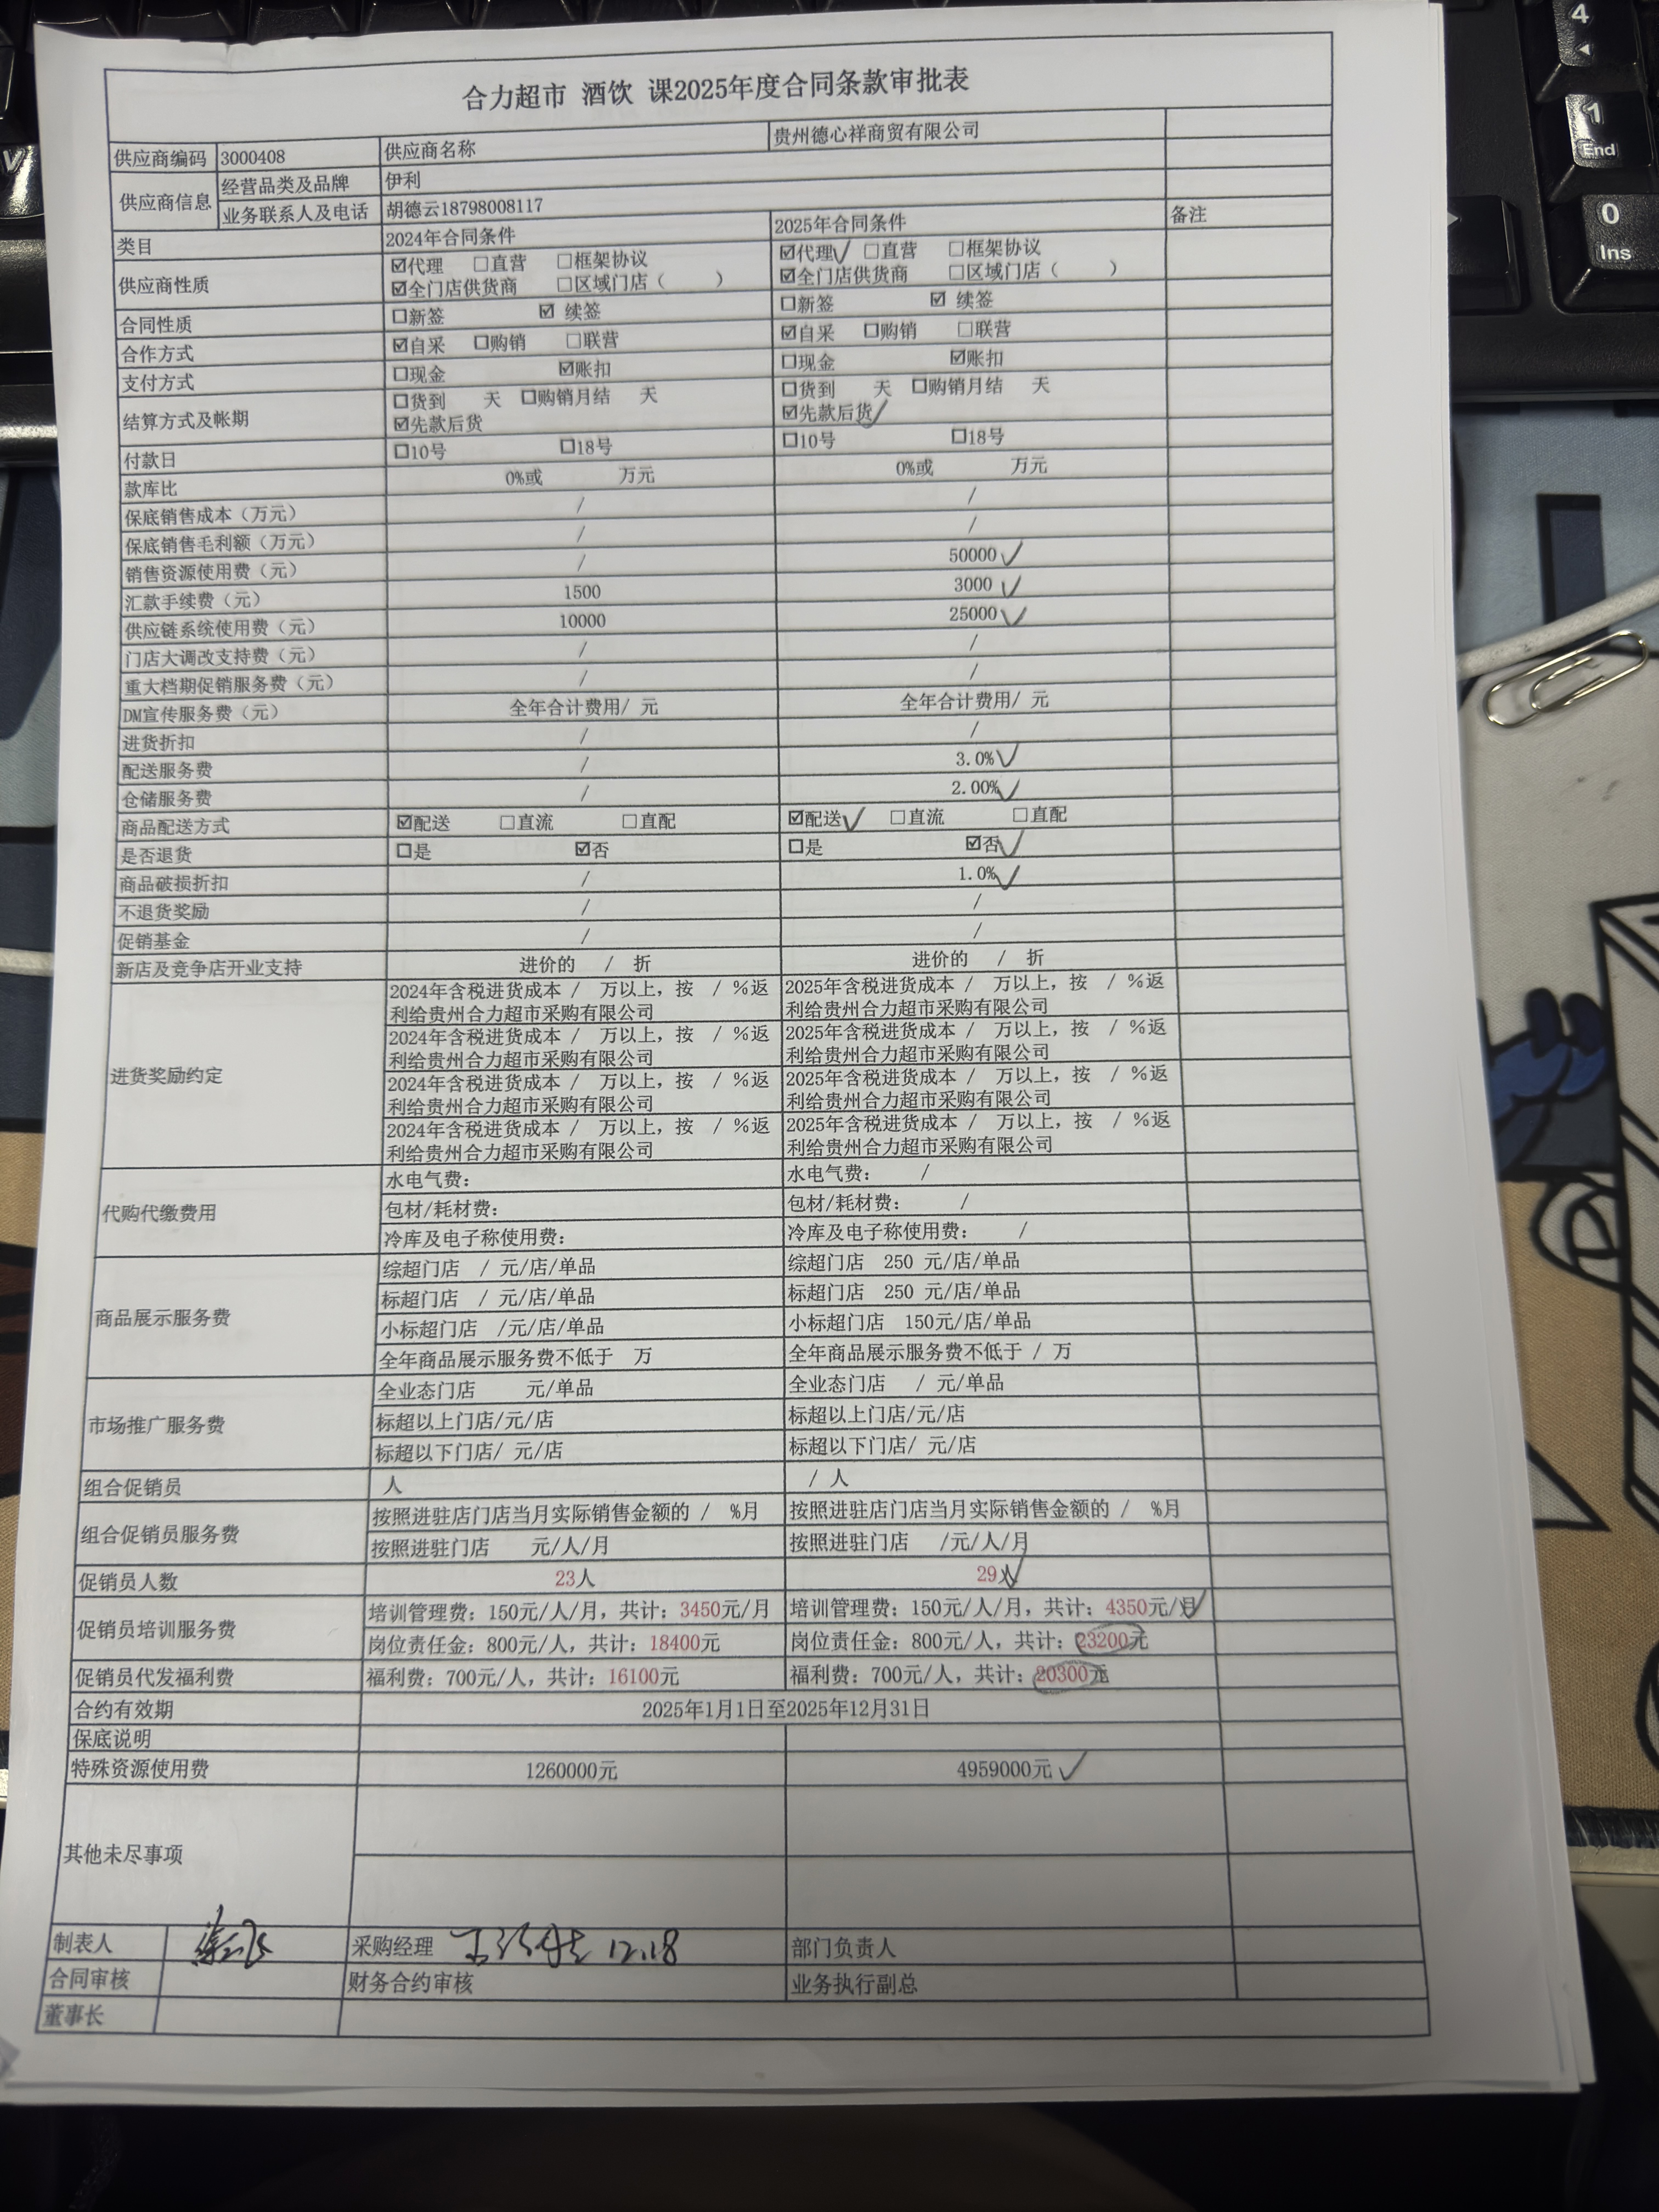 合力超市 酒饮 课2025年度合同条款审批表
供应商编码 3000408 供应商名称 贵州德心祥商贸有限公司
供应商信息 经营品类及品牌 伊利
业务联系人及电话 胡德云18798008117
类目 2024年合同条件 2025年合同条件 备注
供应商性质 ☑代理 ☐直营 ☐框架协议 ☑代理 ☐直营 ☐框架协议
☑全门店供货商 ☐区域门店（ ） ☑全门店供货商 ☐区域门店（ ）
合同性质 ☐新签 ☑ 续签 ☐新签 ☑ 续签
合作方式 ☑自采 ☐购销 ☐联营 ☑自采 ☐购销 ☐联营
支付方式 ☐现金 ☑账扣 ☐现金 ☑账扣
结算方式及帐期 ☐货到 天 ☐购销月结 天 ☐货到 天 ☐购销月结 天
☑先款后货 ☑先款后货
付款日 ☐10号 ☐18号 ☐10号 ☐18号
款库比 0%或 万元 0%或 万元
保底销售成本（万元） / /
保底销售毛利额（万元） / /
销售资源使用费（元） / 50000
汇款手续费（元） 1500 3000
供应链系统使用费（元） 10000 25000
门店大调改支持费（元） / /
重大档期促销服务费（元） / /
DM宣传服务费（元） 全年合计费用/ 元 全年合计费用/ 元
进货折扣 / /
配送服务费 / 3.0%
仓储服务费 / 2.00%
商品配送方式 ☑配送 ☐直流 ☐直配 ☑配送 ☐直流 ☐直配
是否退货 ☐是 ☑否 ☐是 ☑否
商品破损折扣 / 1.0%
不退货奖励 / /
促销基金 / /
新店及竞争店开业支持 进价的 / 折 进价的 / 折
进货奖励约定 2024年含税进货成本 / 万以上，按 / %返 2025年含税进货成本 / 万以上，按 / %返
利给贵州合力超市采购有限公司 利给贵州合力超市采购有限公司
2024年含税进货成本 / 万以上，按 / %返 2025年含税进货成本 / 万以上，按 / %返
利给贵州合力超市采购有限公司 利给贵州合力超市采购有限公司
2024年含税进货成本 / 万以上，按 / %返 2025年含税进货成本 / 万以上，按 / %返
利给贵州合力超市采购有限公司 利给贵州合力超市采购有限公司
2024年含税进货成本 / 万以上，按 / %返 2025年含税进货成本 / 万以上，按 / %返
利给贵州合力超市采购有限公司 利给贵州合力超市采购有限公司
代购代缴费用 水电气费： 水电气费： /
包材/耗材费： 包材/耗材费： /
冷库及电子称使用费： 冷库及电子称使用费： /
商品展示服务费 综超门店 / 元/店/单品 综超门店 250 元/店/单品
标超门店 / 元/店/单品 标超门店 250 元/店/单品
小标超门店 /元/店/单品 小标超门店 150元/店/单品
全年商品展示服务费不低于 万 全年商品展示服务费不低于 / 万
市场推广服务费 全业态门店 元/单品 全业态门店 / 元/单品
标超以上门店/元/店 标超以上门店/元/店
标超以下门店/ 元/店 标超以下门店/ 元/店
组合促销员 人 / 人
组合促销员服务费 按照进驻店门店当月实际销售金额的 / %月 按照进驻店门店当月实际销售金额的 / %月
按照进驻门店 元/人/月 按照进驻门店 /元/人/月
促销员人数 23人 29人
促销员培训服务费 培训管理费：150元/人/月，共计：3450元/月 培训管理费：150元/人/月，共计：4350元/月
岗位责任金：800元/人，共计：18400元 岗位责任金：800元/人，共计：23200元
促销员代发福利费 福利费：700元/人，共计：16100元 福利费：700元/人，共计：20300元
合约有效期 2025年1月1日至2025年12月31日
保底说明
特殊资源使用费 1260000元 4959000元
其他未尽事项
制表人 采购经理 12.18 部门负责人
合同审核 财务合约审核 业务执行副总
董事长
4
1
End
0
Ins
V